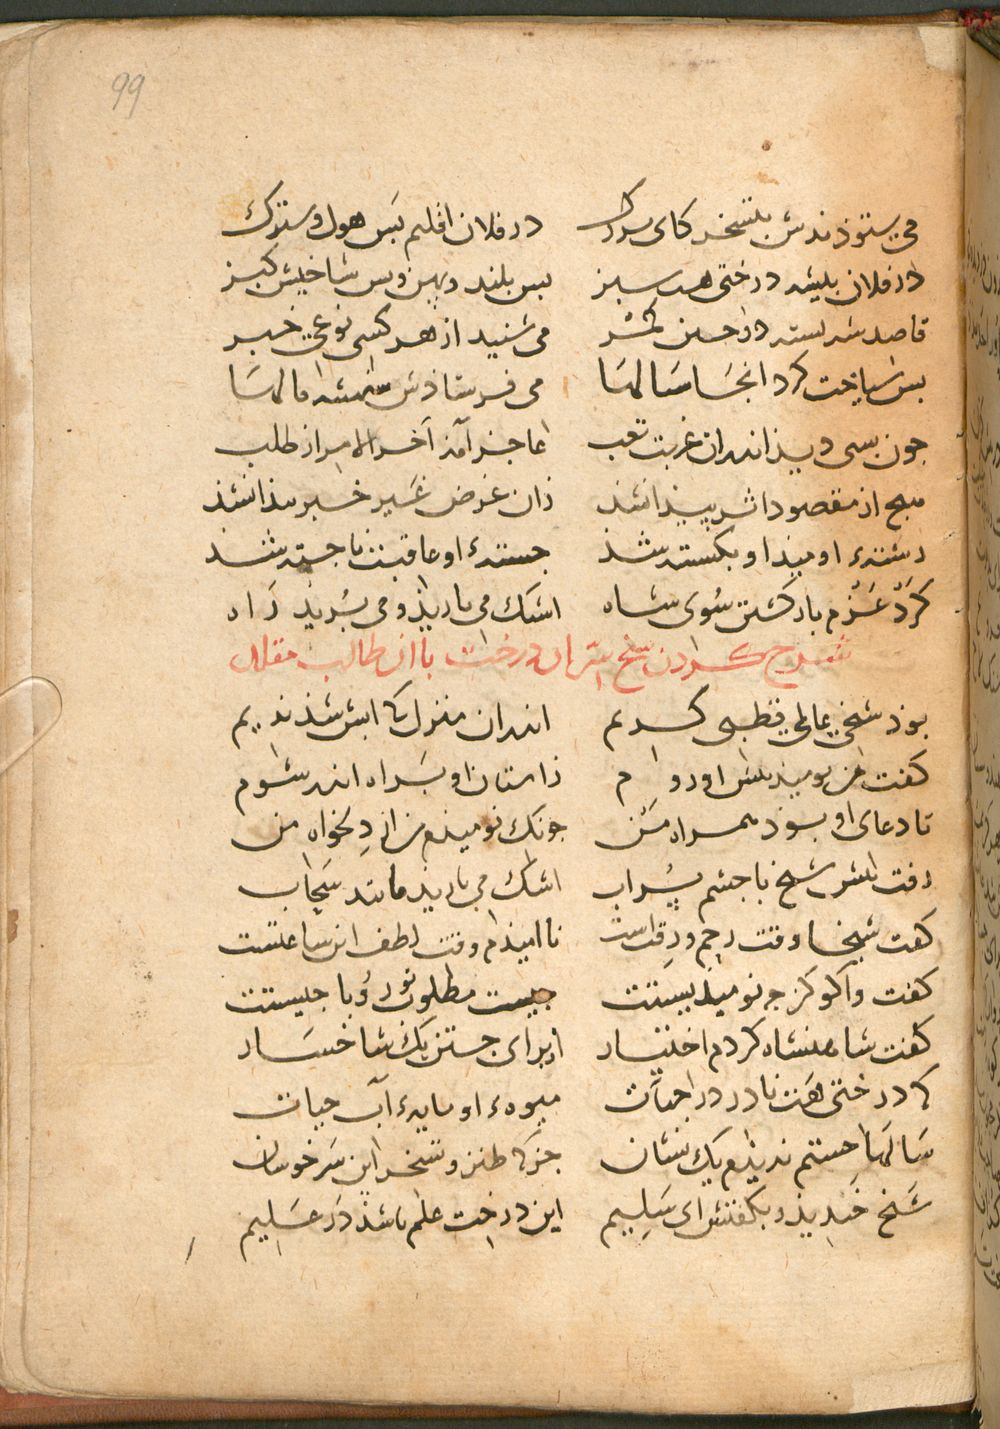 99
می ستوذندش بتسخر کای بزرک در فلان اقلیم بَس هول و سترک
در فلان بیشه درختی هست سبز بس بلند و پهن و بس شاخیش کبز
قاصد شه بسته در جستن کمر می شنید از هر کسی نوعی خبر
بس سیاحت کرد انجا سَالهَا می فرستاذش شهنشه مالهَا
جون بسی دید اندران غربت تعب عاجز آمذ آخر الامر از طلب
هیچ از مقصود اثر پیدا نشذ زان غرض غَیر خبر پیذا نشذ
رشتهٔ اومید او بکسسته شذ جستهٔ او عاقبت ناجسته شذ
کرَدْ عَزْم بازکشتن سُوی شاه اشک می باریذ و می بُریذ رَاه
شرح کردن شیخ سرّ ان درخت با ان طالب مقلد
بوذ شیخی عالمی قطبی کریم اندران منزل که ایش شذ ندیم
کفت من نومیذ پیش او روم ز آستان او بَراه اندر شوم
تا دعای او بوذ همراه مَن جونک نومیذم من از دلخواه من
رفت پیش شیخ با جشم پُر اب اشک می باریذ مانند سَحاب
کفت شیخا وقت رحم و رقتست ناامیذم وقت لطف این ساعتست
کفت واکو کز جه نومیذیستت جیست مطلوب تو رُو با جیستت
کفت شاهنشاه کردم اختیار از برای جستن یک شاخسَار
که درختی هَست نادر در جهات میوهٔ او مایهٔ آب حیات
سَالهَا جستم ندیذم یک نشان جز که طنز و تسخر این سَرخوشان
شَیخ خندیذ و بکفتش ای سَلیم این درخت علم باشذ در عَلیم